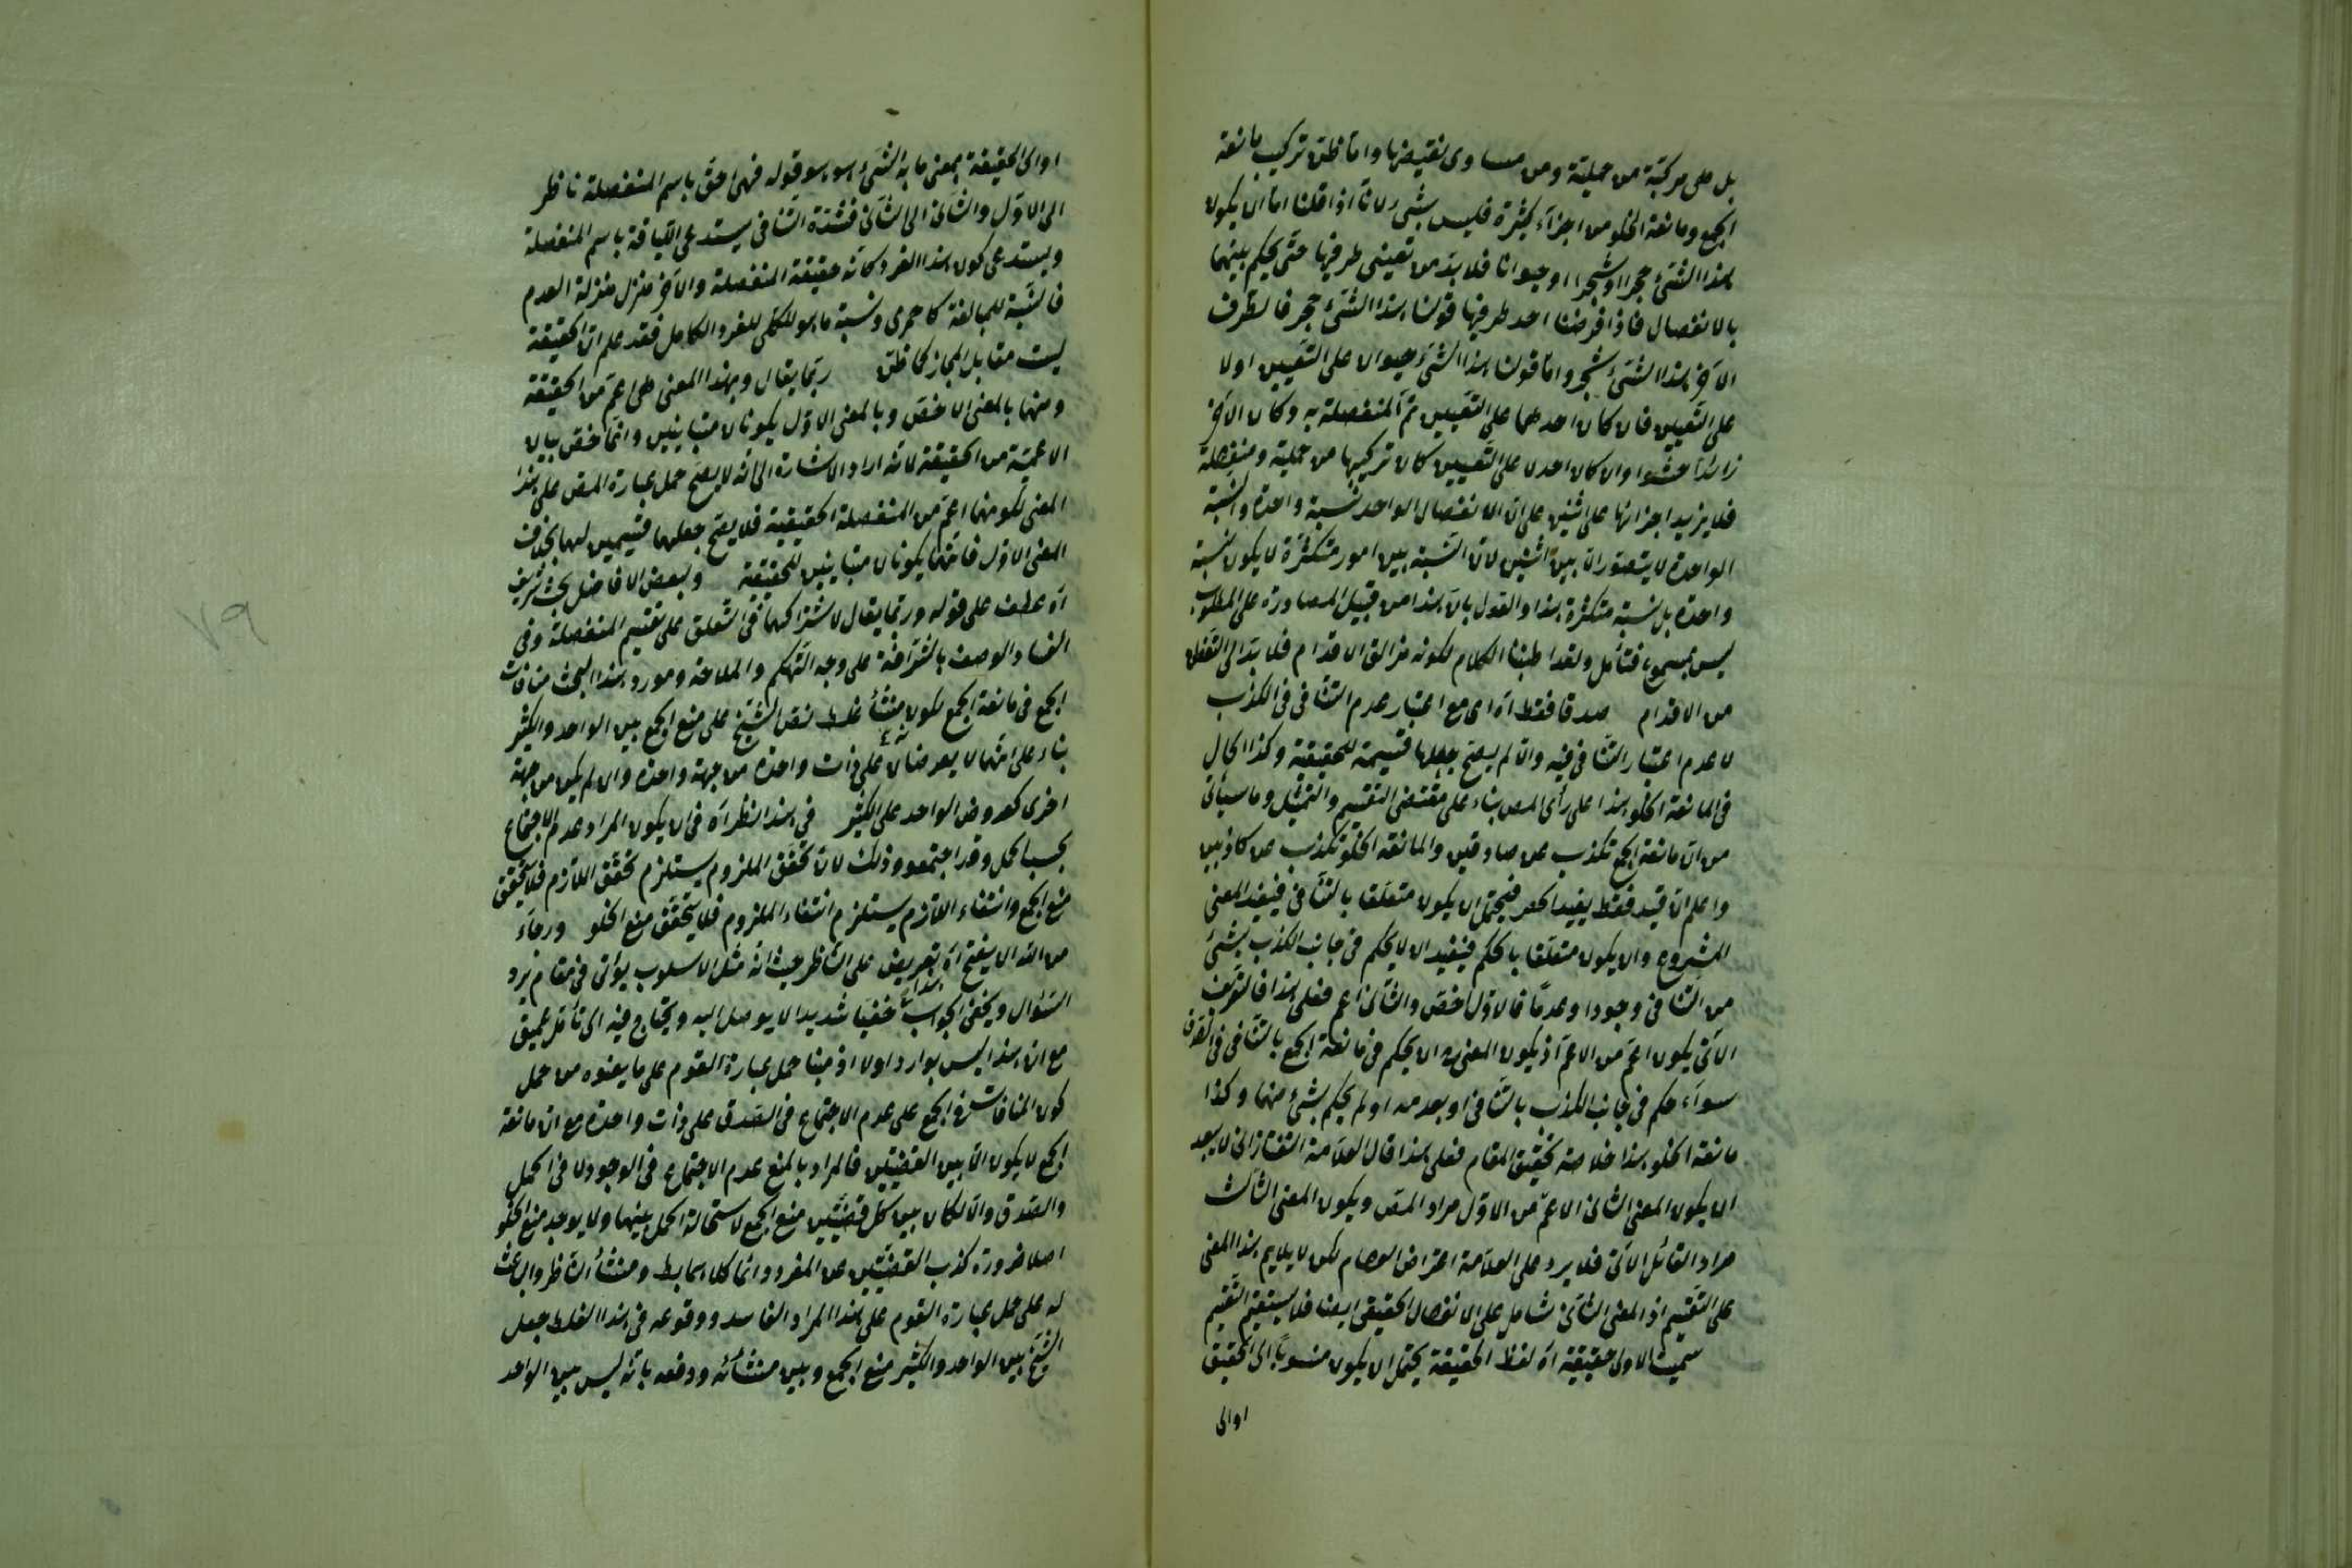 بل هى مركبة من حملية ومن مساوى نقيضها واما ظن تركيب مانعة
الجمع ومانعة الخلو من اجزاء كثيرة فليس بشئ لانا اذا قلنا اما ان يكون
هذا الشئ حجرا او شجرا او حيوانا فلا بد من تعيين طرفيها حتى يحكم بينهما
بالانفصال فاذا فرضنا احد طرفيها قولنا هذا الشئ حجر فالطرف
الاخر هذا الشئ شجر واما قولنا هذا الشئ حيوان على التعيين او لا
على التعيين فان كان احدهما على التعيين تم المنفصلة به وكان الاخر
زائدا حشوا وان كان احد لا على التعيين كان تركيبها من حملية ومنفصلة
فلا يزيد اجزائها على اثنين على ان الانفصال الواحد نسبة واحدة والنسبة
الواحدة لا يتصور الا بين اثنين لان النسبة بين امور متكثرة لا يكون نسبة
واحدة بل نسبة متكثرة هذا والقول بان هذا من قبيل المصادرة على المطلوب
ليس بمسموع فتأمل ولقد اطنبنا الكلام لكونه مزالق الاقدام فلا بد الى التفطن
من الاقدام صدقا فقط اه اى مع اعتبار عدم التنافى فى الكذب
لا عدم اعتبار التنافى فيه والا لم يصح جعلها قسيمة للحقيقة وكذا الحال
فى المانعة الخلو هذا على رأى المص بناء على مقتضى التقسيم والتمثيل وما سيأتى
من ان مانعة الجمع تكذب عن صادقين والمانعة الخلو تكذب عن كاذبين
واعلم ان قيد فقط يفيد الحصر فيحتمل ان يكون متعلقا بالتنافى فيفيد المعنى
المشروح وان يكون متعلقا بالحكم فيفيد ان لا يحكم فى جانب الكذب بشئ
من التنافى وجودا وعدما فالاول اخص والثانى اعم فعلى هذا فالتعريف
الاتى يكون اعم من الاعم اذ يكون المعنى ان يحكم فى مانعة الجمع بالتنافى فى الصدق
سواء حكم فى جانب الكذب بالتنافى او بعدمه او لم يحكم بشئ منهما وكذا
مانعة الخلو هذا خلاصة تحقيق المقام فعلى هذا قال العلامة التفتازانى لا يبعد
ان يكون المعنى الثانى الاعم من الاول مراد المص ويكون المعنى الثالث
مراد القائل الاتى فلا يرد على العلامة اعتراض العصام لكن لا يلايم هذا المعنى
على التقسيم اذ المعنى الثانى شامل على الانفصال الحقيقى ايضا فلا يستقيم التقسيم
سميت الاولى حقيقية اه لفظ الحقيقة يحتمل ان يكون منسوبا الى الحقيق
او الى
او الى الحقيقة بمعنى ما به الشئ هو هو قوله فهى احق باسم المنفصلة ناظر
الى الاول والثانى الى الثانى فشدة التنافى يستدعى اللياقة باسم المنفصلة
ويستدعى كون هذا الفرد كانه حقيقة المنفصلة والاخر منزل منزلة العدم
فالنسبة للمبالغة كاحمرى ونسبة ما هو للكلى للفرد الكامل فقد علم ان الحقيقة
ليست مقابل المجاز كما ظن ربما يقال وبهذا المعنى هى اعم من الحقيقة
ومنهما بالمعنى الاخص وبالمعنى الاول يكونان متباينين وانما خص بيان
الاعمية من الحقيقة لانه اراد الاشارة الى انه لا يصح حمل عبارة المص على هذا
المعنى لكونهما اعم من المنفصلة الحقيقية فلا يصح جعلهما قسيمين لها بخلاف
المعنى الاول فانهما يكونان متباينين للحقيقة ولبعض الافاضل بحث شريف
اه عطف على قوله وربما يقال لاشتراكهما فى التعلق على تقسيم المنفصلة وفى
الفساد والوصف بالشرافة على وجه التهكم والملاحة ومورد هذا البحث منافات
الجمع فى مانعة الجمع لكون منشأ غلط نص الشيخ على منع الجمع بين الواحد والكثير
بناء على انهما لا يعرضان على ذات واحدة من جهة واحدة وان لم يكن من جهة
اخرى كعروض الواحد على الكثير فى هذا نظر اه فى ان يكون المراد عدم الاجتماع
بحسب الحمل وقد اجتمعو وذلك لان تحقق الملزوم يستلزم تحقق اللازم فلا يتحقق
منع الجمع وانتفاء اللازم يستلزم انتفاء الملزوم فلا يتحقق منع الخلو ورجاء
من الله ان يفتح اه تعريض على الناظر حيث انه مثل الاسلوب يؤتى فى مقام يرد
السؤال ويخفى الجواب خفيا شديدا لا يوصل اليه ويحتاج فيه الى تأمل عميق
مع ان هذا ليس بوارد اولا اذ مبنا حمل عبارة القوم على ما يعنوه من حمل
كون المنافات فى الجمع على عدم الاجتماع فى الصدق على ذات واحدة مع ان مانعة
الجمع لا يكون الا بين القضيتين فالمراد بالمنع عدم الاجتماع فى الوجود لا فى الحمل
والصدق والا لكان بين كل قضيتين منع الجمع لاستحالة الحمل بينهما ولا يوجد منع الخلو
اصلا ضرورة كذب القضيتين عن المفرد دائما ومنشأ الناظر والباعث
له على حمل عبارة القوم على هذا المراد الفاسد ووقوعه فى هذا الغلط جعل
الشيخ بين الواحد والكثير منع الجمع وبين منشأئه ودفعه بانه ليس بين الواحد
٧٩